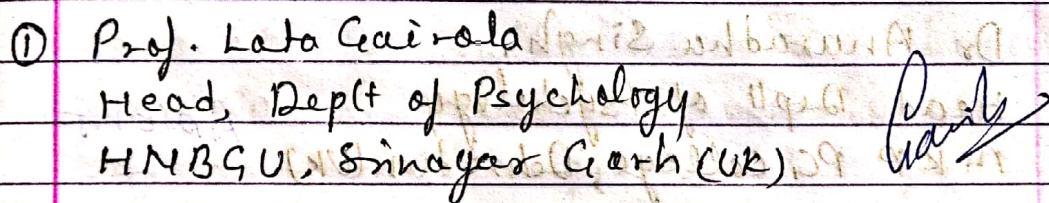 ① Prof. Lata Gairola
Head, Deptt of Psychology
HNBGU, Srinagar Garh (UK)